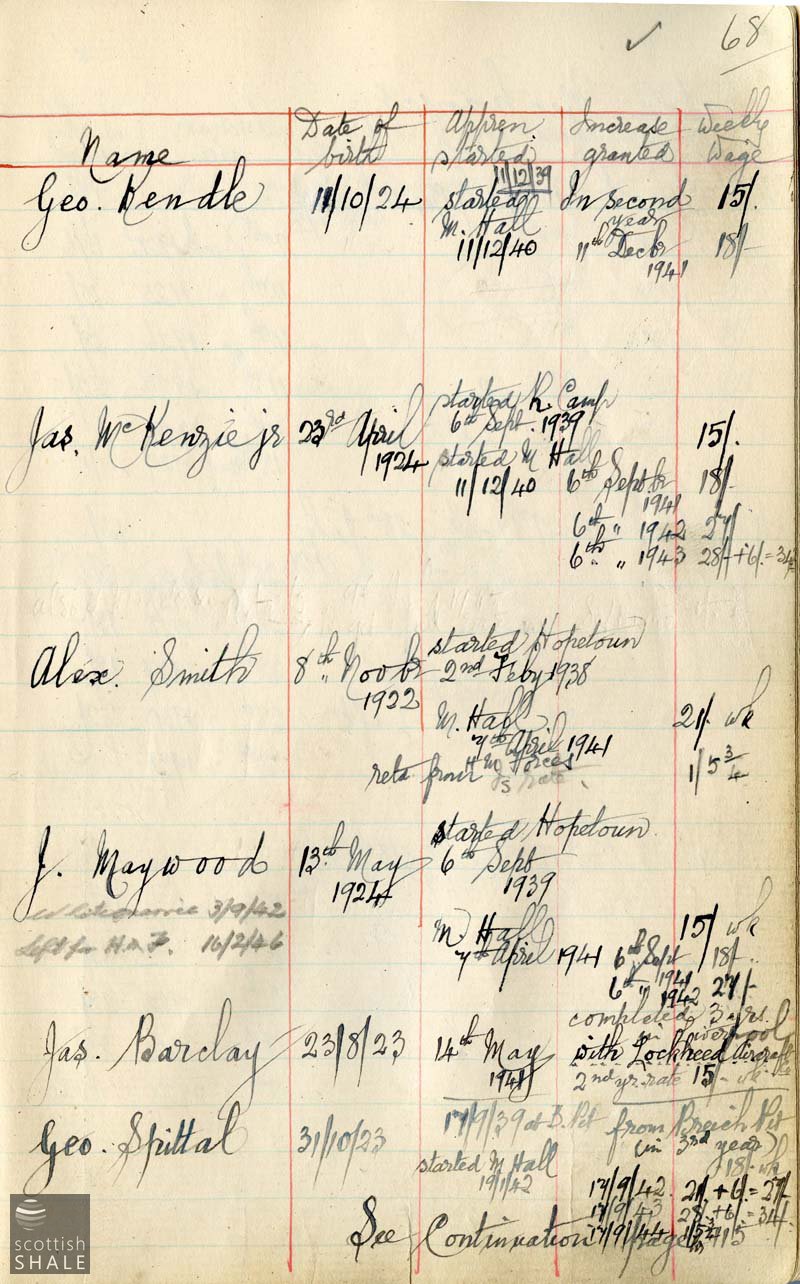 68
Name Date of birth Appren. started Increase granted Weekly Wage
11/12/39
Geo. Kendle 11/10/24 started In second 15/.
M. Hall year
11/12/40 11th Decbr 18/-
1941
started R. Camp
6th Sept. 1939
Jas. McKenzie jr 23rd April 15/.
1924 started M. Hall
11/12/40 6th Septbr 18/-
1941
6th " 1942 27/
6th " 1943 28/- + 6/- = 34/-
started Hopetoun
Alex. Smith 8th Novbr 2nd Feby 1938
1922
M. Hall 21/. wk
7th April 1941
retd from H.M. Forces 1/5 3/4
rate
started Hopetoun
J. Maywood 13th May 6th Sept
1924 1939
3/9/42
Left for H.M.F. 16/2/46
M. Hall 15/ wk
7th April 1941 6th Sept 18/-
1941
6th " 1942 27/-
completed 3 yrs.
in Liverpool
Jas. Barclay 23/8/23 14th May with Lockheed Aircraft
1941 2nd yr. rate 15/- wk
17/9/39 at B. Pit from Breich Pit
Geo. Spittal 31/10/23 (in 3rd year)
started M. Hall 18/- wk
19/1/42
17/9/42 21/- + 6/- = 27/-
17/9/43 28/- + 6/- = 34/-
17/9/44
See Continuation page
scottish
SHALE